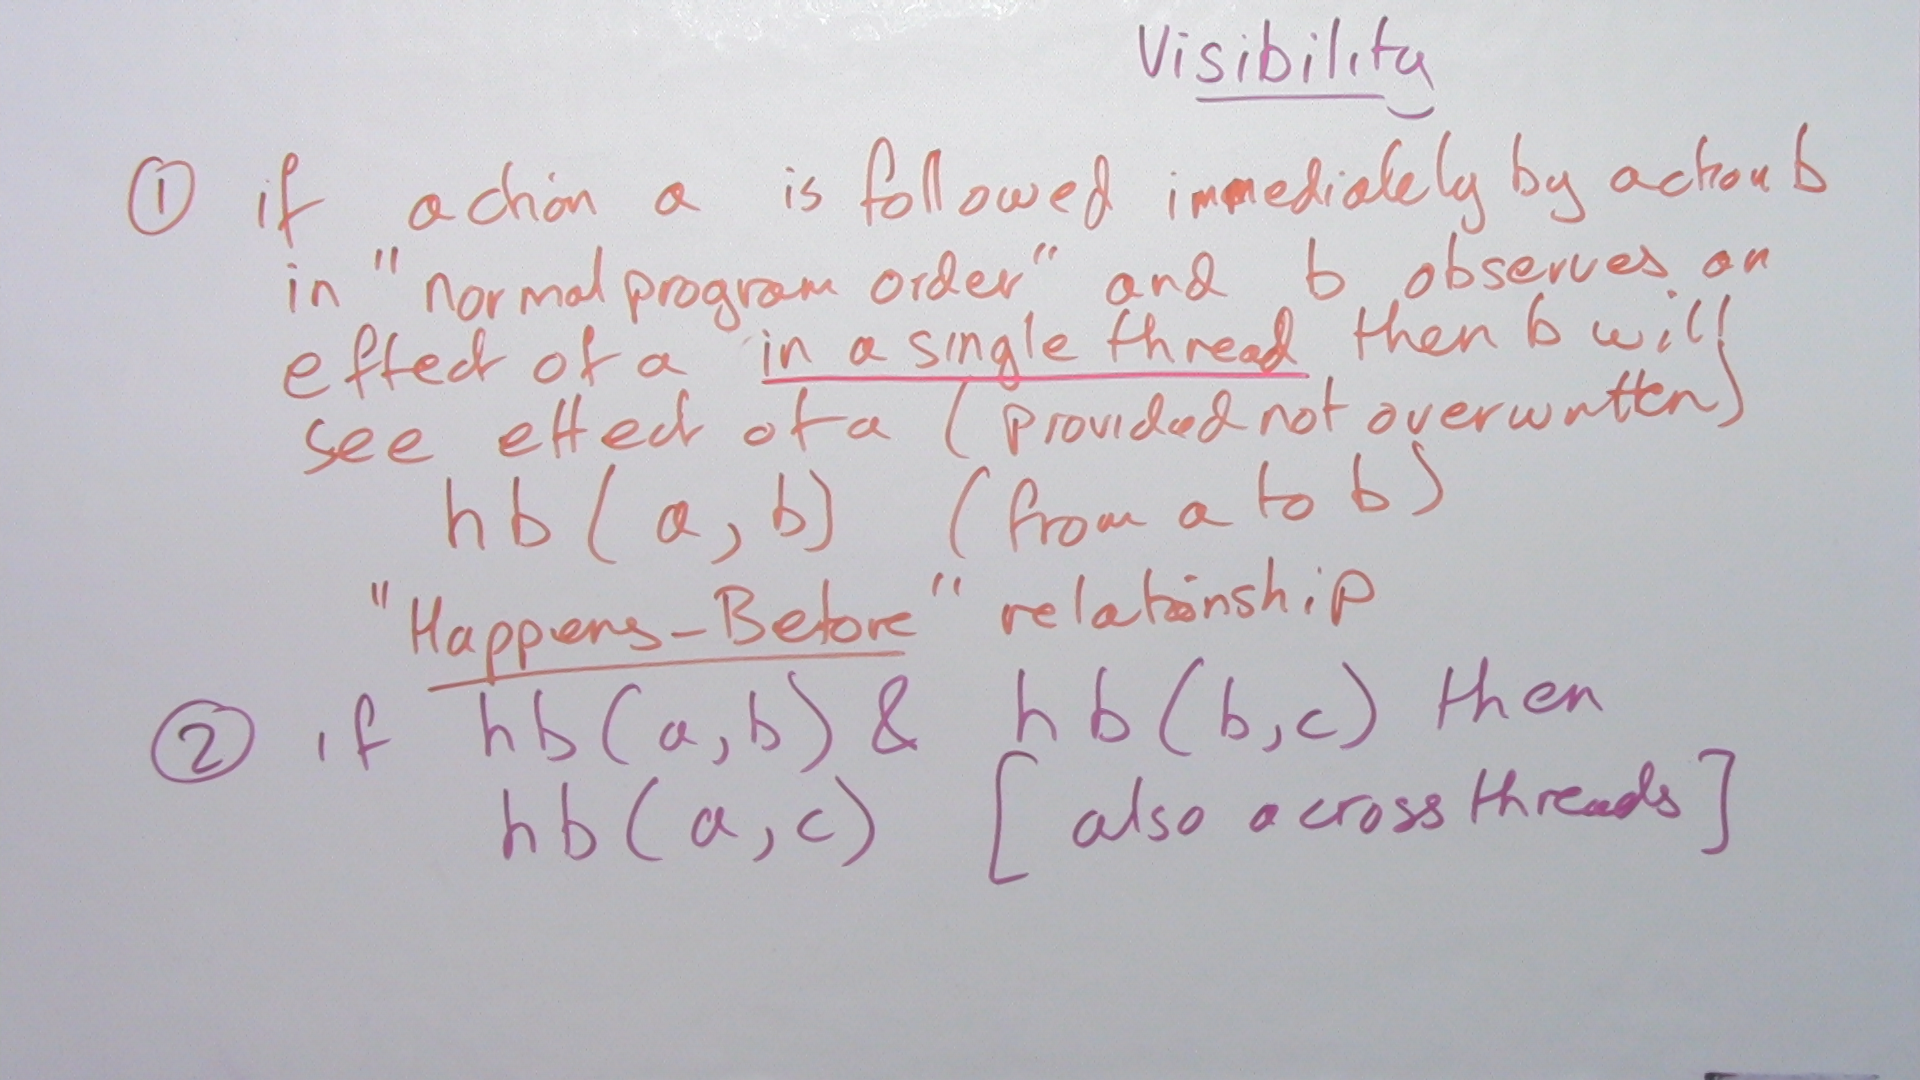 Visibility
① if action a is followed immediately by action b
in "normal program order" and b observes an
effect of a in a single thread then b will
see effect of a (provided not overwritten)
hb(a,b) (from a to b)
"Happens-Before" relationship
② if hb(a,b) & hb(b,c) then
hb(a,c) [also across threads]